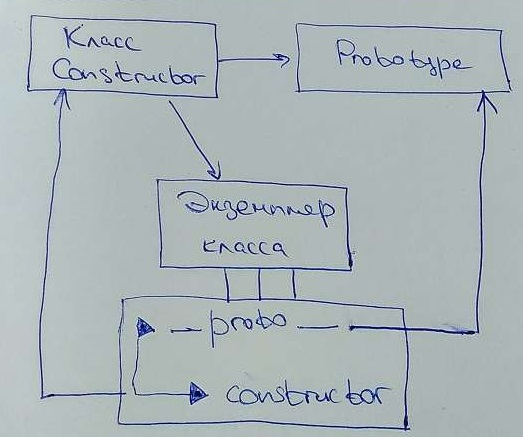 Класс
Constructor
Probotype
Экземпляр
класса
— probo —
constructor